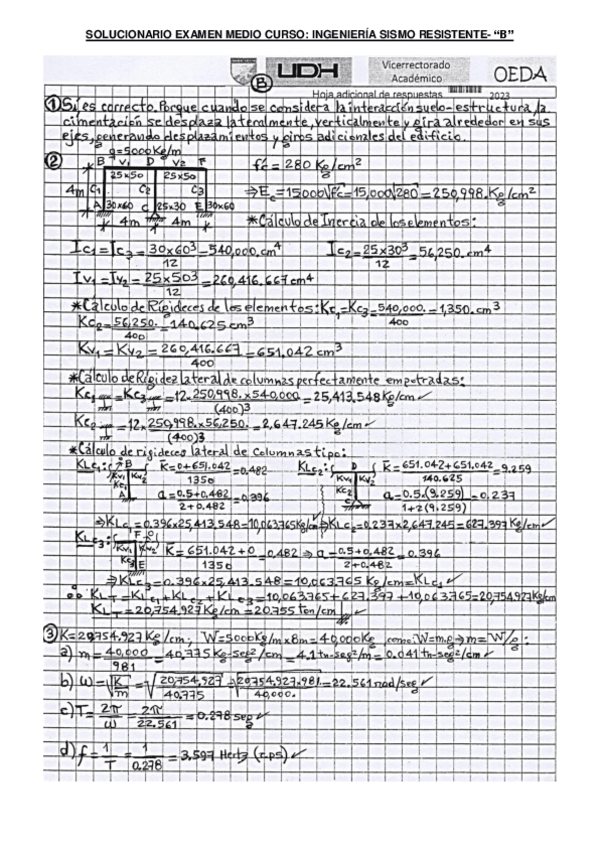 SOLUCIONARIO EXAMEN MEDIO CURSO: INGENIERÍA SISMO RESISTENTE- "B"
UDH
Vicerrectorado
Académico
OEDA
B
Hoja adicional de respuestas
2023
① Si, es correcto. Porque cuando se considera la interacción suelo-estructura, la
cimentación se desplaza lateralmente, verticalmente y gira alrededor en sus
ejes, generando desplazamientos y giros adicionales del edificio.
q=5000Kg/m
② B V1 D V2 F
25x50 25x50
4m C1 C2 C3
A 30x60 C 25x30 E 30x60
4m 4m
f'c = 280 Kg/cm²
⇒ Ec = 15000√f'c = 15,000√280 = 250,998. Kg/cm²
*Cálculo de Inercia de los elementos:
Ic1 = Ic3 = 30x60³/12 = 540,000. cm⁴ Ic2 = 25x30³/12 = 56,250. cm⁴
Iv1 = Iv2 = 25x50³/12 = 260,416.667 cm⁴
*Cálculo de Rigideces de los elementos: Kc1 = Kc3 = 540,000./400 = 1,350. cm³
Kc2 = 56,250./400 = 140.625 cm³
Kv1 = Kv2 = 260,416.667/400 = 651.042 cm³
*Cálculo de Rigidez lateral de columnas perfectamente empotradas:
Kc1 = Kc3 = 12x250,998.x540,000./(400)³ = 25,413.548 Kg/cm ✓
Kc2 = 12x250,998.x56,250./(400)³ = 2,647.245 Kg/cm ✓
*Cálculo de rigideces lateral de columnas tipo:
KLc1: B Kv1 Kc1 A K̅ = 0+651.042/1350 = 0.482 KLc2: D Kv1 Kv2 Kc2 C K̅ = 651.042+651.042/140.625 = 9.259
a = 0.5+0.482/2+0.482 = 0.396 a = 0.5(9.259)/1+2(9.259) = 0.237
⇒ KLc1 = 0.396x25,413.548 = 10,063.765 Kg/cm ✓ ⇒ KLc2 = 0.237x2,647.245 = 627.397 Kg/cm ✓
KLc3: F Kv2 Kc3 E K̅ = 651.042+0/1350 = 0.482 ⇒ a = 0.5+0.482/2+0.482 = 0.396
⇒ KLc3 = 0.396x25,413.548 = 10,063.765 Kg/cm = KLc1 ✓
∴ KLT = KLc1 + KLc2 + KLc3 = 10,063.765 + 627.397 + 10,063.765 = 20,754.927 Kg/cm
KLT = 20,754.927 Kg/cm = 20.755 ton/cm ✓
③ K = 20,754.927 Kg/cm; W = 5000 Kg/m x 8m = 40,000 Kg como: W = m.g ⇒ m = W/g:
a) m = 40,000/981 = 40.775 Kg-seg²/cm = 4.1 tn-seg²/m = 0.041 tn-seg²/cm ✓
b) ω = √K/m = √20,754.927/40.775 = √20754.927x981/40,000. = 22.561 rad/seg ✓
c) T = 2π/ω = 2π/22.561 = 0.278 seg ✓
d) f = 1/T = 1/0.278 = 3.597 Hertz (r.p.s) ✓